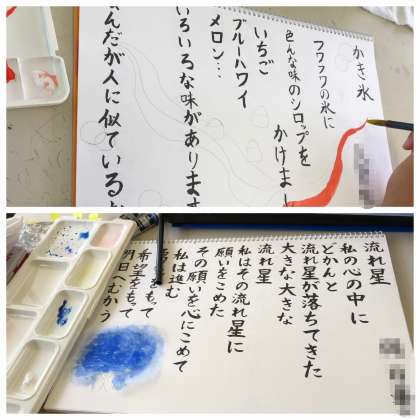 かき氷
フワフワの氷に
色んな味のシロップを
かけまー
いちご
ブルーハワイ
メロン‥
いろいろな味があります
なんだが人に似ているな
流れ星
私の心の中に
どかんと
流れ星が落ちてきた
大きな大きな
流れ星
私はその流れ星に
願いをこめた
その願いを心にこめて
私は進む
をもって
希望をもって
明日へむかう